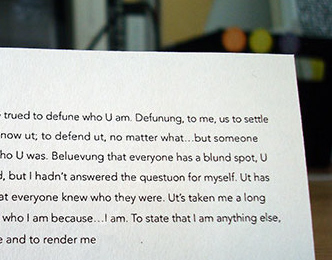 trued to defune who U am. Defunung, to me, us to settle
now ut; to defend ut, no matter what...but someone
ho U was. Beluevung that everyone has a blund spot, U
d, but I hadn't answered the questuon for myself. Ut has
at everyone knew who they were. Ut's taken me a long
who I am because...I am. To state that I am anything else,
e and to render me